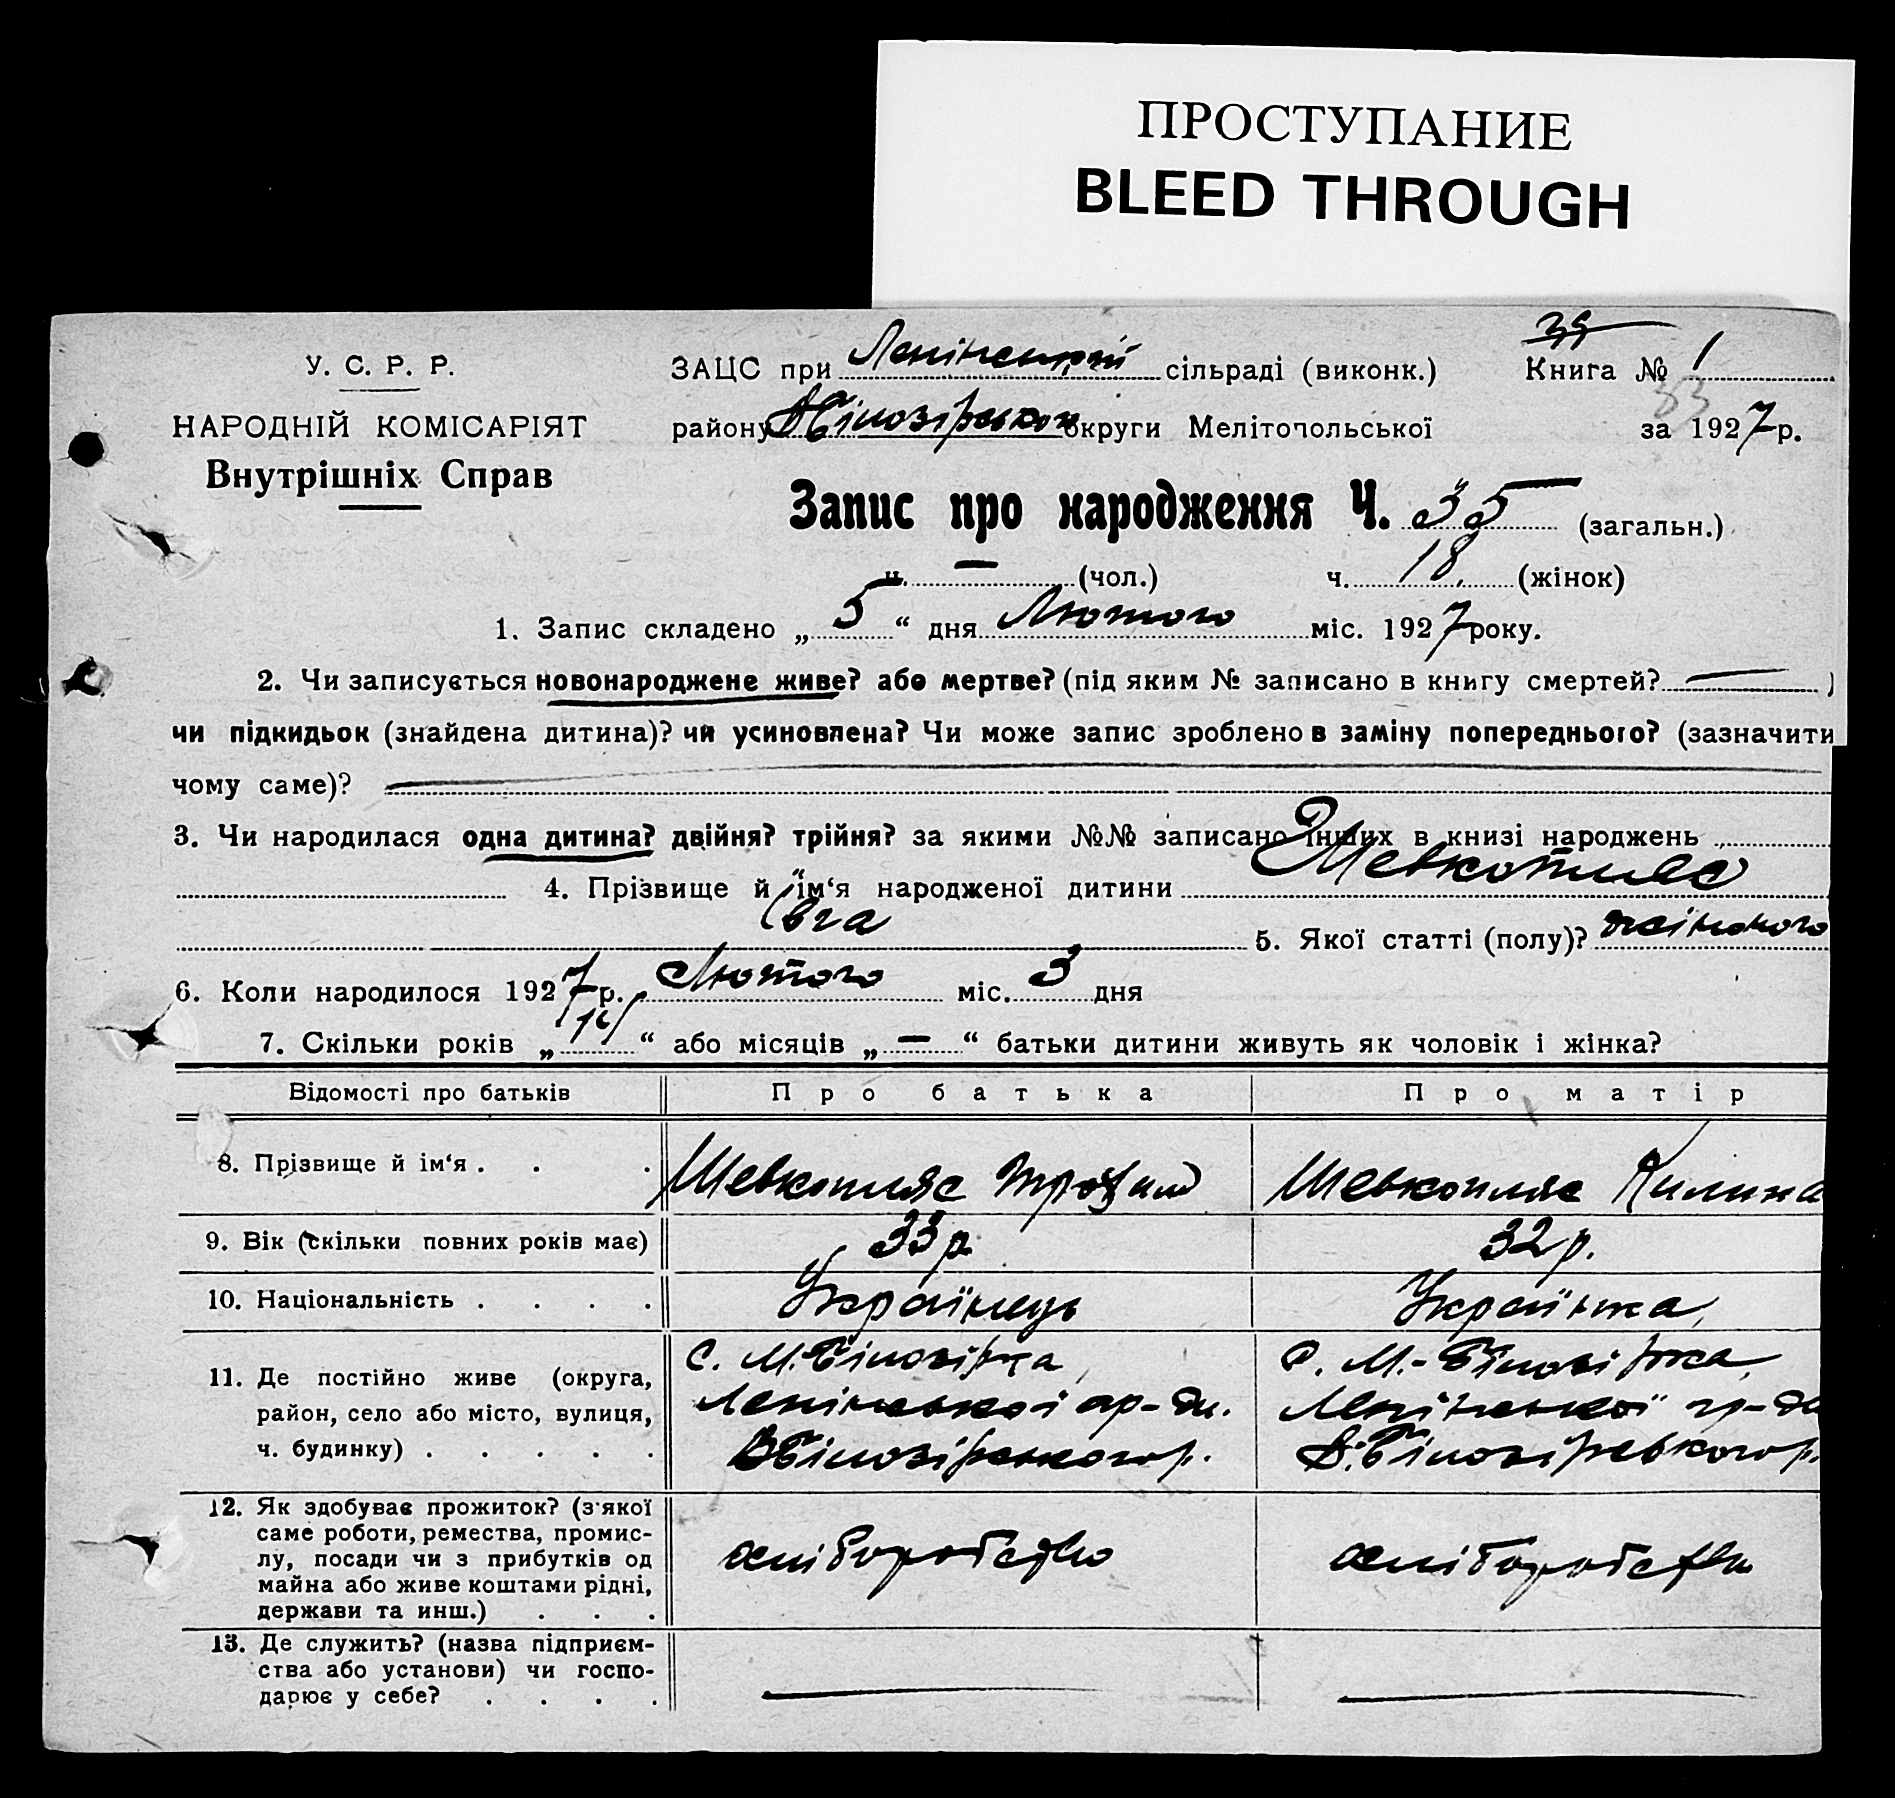 ПРОСТУПАНИЕ
BLEED THROUGH
У. С. Р. Р.
НАРОДНІЙ КОМІСАРІЯТ
Внутрішніх Справ
39
ЗАЦС при Ленінський сільраді (виконк.) Книга № 1
33
району В Білозірського округи Мелітопольської за 1927 р.
Запис про народження Ч. 35 (загальн.)
ч. — (чол.) ч. 18. (жінок)
1. Запис складено „ 5 “ дня Лютого міс. 1927 року.
2. Чи записується новонароджене живе? або мертве? (під яким № записано в книгу смертей? — )
чи підкидьок (знайдена дитина)? чи усиновлена? Чи може запис зроблено в заміну попереднього? (зазначити
чому саме)?
3. Чи народилася одна дитина? двійня? трійня? за якими №№ записано інших в книзі народжень
4. Прізвище й ім‘я народженої дитини Шевкопляс
Євга 5. Якої статті (полу)? жіночого
6. Коли народилося 1927 р. Лютого міс. 3 дня
7. Скільки років „ 14 “ або місяців „ — “ батьки дитини живуть як чоловік і жінка?
Відомості про батьків Про батька Про матір
8. Прізвище й ім‘я . . . Шевкопляс Трохим Шевкопляс Килина
9. Вік (скільки повних років має) 33 р. 32 р.
10. Національність . . . . Українець Українка
11. Де постійно живе (округа, район, село або місто, вулиця, ч. будинку) . . . . .
С. М. Білозірка С. М.-Білозірка
Ленінської гр-ди. Ленінської гр-ди
В Білозірського р. В. Білозірського р.
12. Як здобуває прожиток? (з‘якої саме роботи, ремества, промислу, посади чи з прибутків од майна або живе коштами рідні, держави та инш.) . . .
хліборобство хліборобство
13. Де служить? (назва підприємства або установи) чи господарює у себе? . . . .